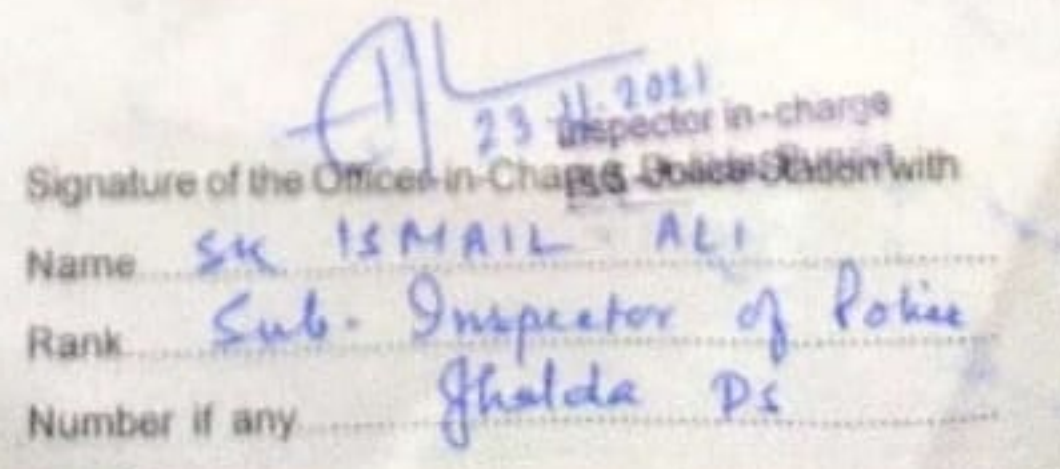 23.11.2021
Inspector in-charge
Signature of the Officer-in-Charge Police Station with
Name SK ISMAIL ALI
Rank Sub-Inspector of Police
Number if any Jhalda PS